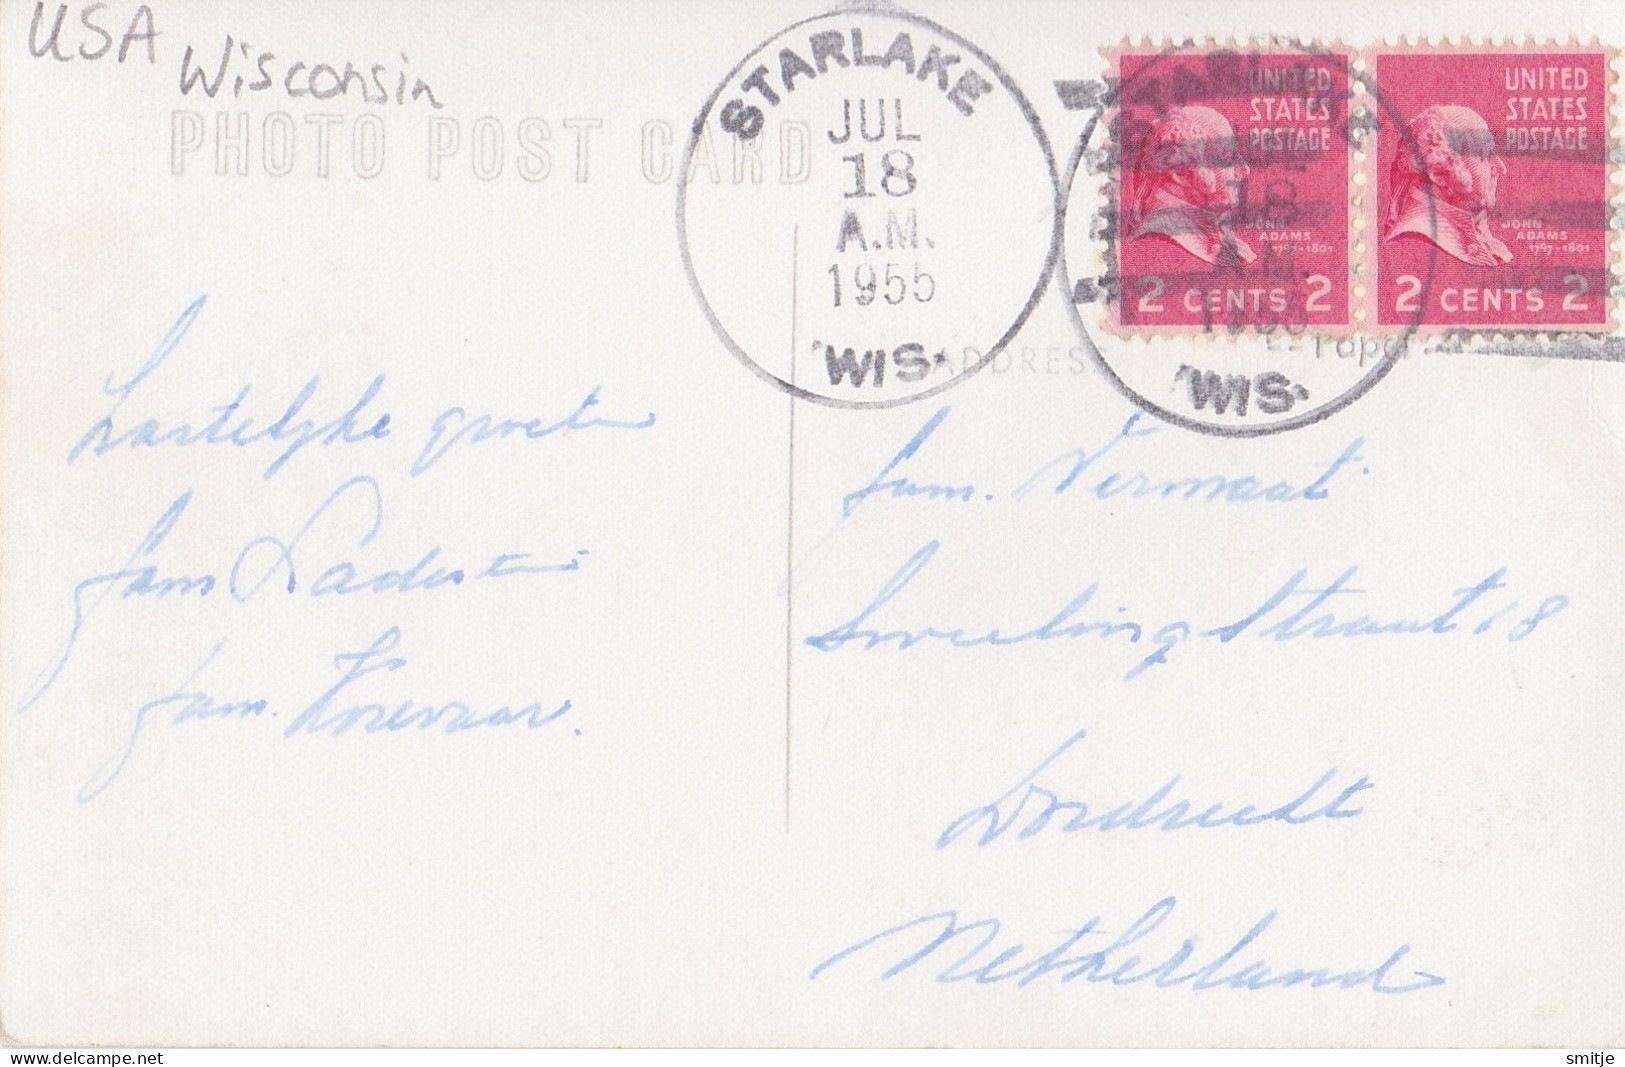 USA
Wisconsin
PHOTO POST CARD
STARLAKE
JUL
18
A.M.
1955
WIS.
STARLAKE
JUL
18
A.M.
1955
WIS.
UNITED
STATES
POSTAGE
JOHN
ADAMS
1797-1801
2 CENTS 2
UNITED
STATES
POSTAGE
JOHN
ADAMS
1797-1801
2 CENTS 2
ADDRESS
Paper
Hartelijke groeten
fam
fam. Korevaar.
fam. Vermaat
Sweelingstraat 18
Dordrecht
Netherland
Delcampe.net
smitje